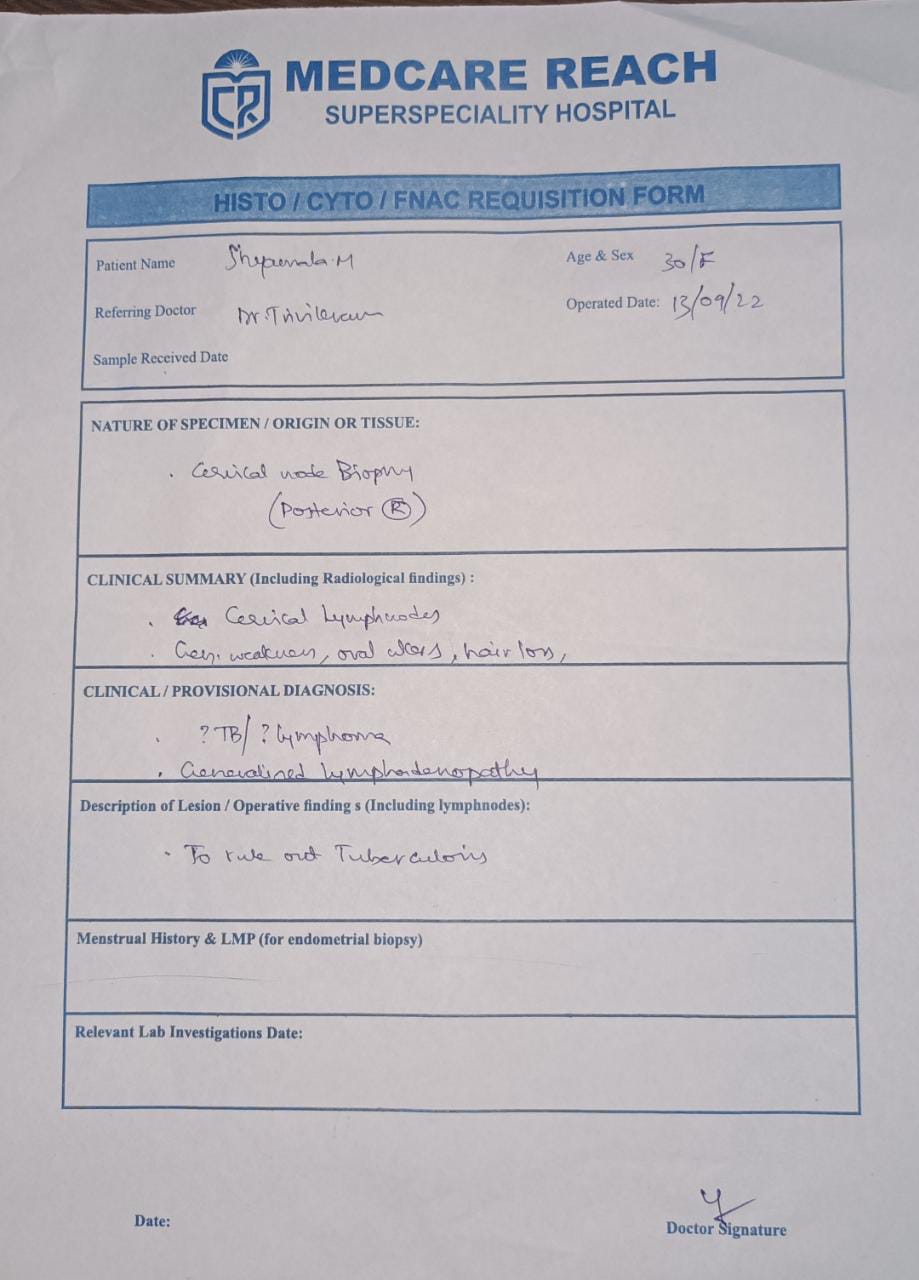 CR
MEDCARE REACH
SUPERSPECIALITY HOSPITAL
HISTO / CYTO / FNAC REQUISITION FORM
Patient Name
Age & Sex 30/F
Referring Doctor Dr.
Operated Date: 13/09/22
Sample Received Date
NATURE OF SPECIMEN / ORIGIN OR TISSUE:
. Cervical node Biopsy
(Posterior R)
CLINICAL SUMMARY (Including Radiological findings) :
. Cervical Lymphnodes
. Gen. weakness, oral ulcers, hair loss,
CLINICAL / PROVISIONAL DIAGNOSIS:
. ?TB/ ? Lymphoma
. Generalised Lymphadenopathy
Description of Lesion / Operative finding s (Including lymphnodes):
. To rule out Tuberculosis
Menstrual History & LMP (for endometrial biopsy)
Relevant Lab Investigations Date:
Date:
Doctor Signature